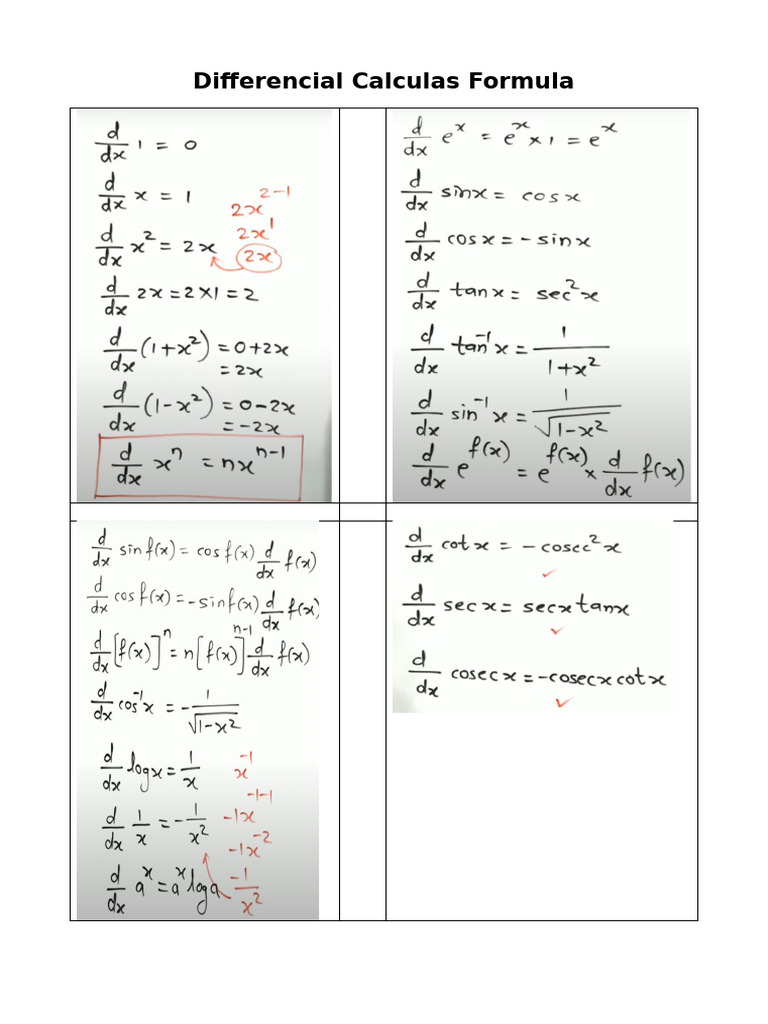 Differencial Calculas Formula
d/dx 1 = 0
d/dx x = 1
2x^(2-1)
2x^1
d/dx x^2 = 2x
2x
d/dx 2x = 2×1 = 2
d/dx (1+x^2) = 0+2x
= 2x
d/dx (1-x^2) = 0-2x
= -2x
d/dx x^n = nx^(n-1)
d/dx e^x = e^x × 1 = e^x
d/dx sinx = cosx
d/dx cosx = -sinx
d/dx tanx = sec^2 x
d/dx tan^-1 x = 1/(1+x^2)
d/dx sin^-1 x = 1/√(1-x^2)
d/dx e^f(x) = e^f(x) × d/dx f(x)
d/dx sinf(x) = cosf(x) d/dx f(x)
d/dx cosf(x) = -sinf(x) d/dx f(x)
d/dx [f(x)]^n = n[f(x)]^(n-1) d/dx f(x)
d/dx cos^-1 x = -1/√(1-x^2)
d/dx logx = 1/x
x^-1
d/dx 1/x = -1/x^2
-1x^(-1-1)
-1x^-2
d/dx a^x = a^x loga
-1/x^2
d/dx cotx = -cosec^2 x
d/dx secx = secxtanx
d/dx cosecx = -cosecxcotx